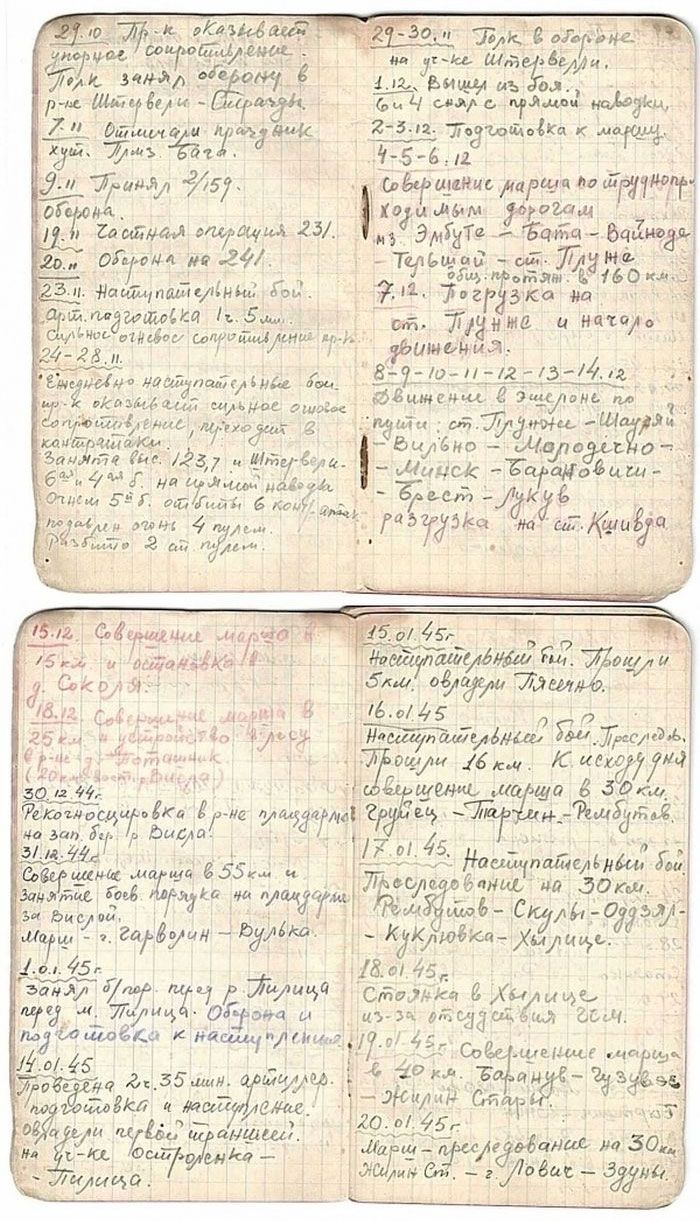 29.10 Пр-к оказывает
упорное сопротивление.
Полк занял оборону в
р-не Штервели - Стразды
7.11 Отмечали праздник
хут. Плмз. Бага.
9.11 Принял 2/159.
оборона.
19.11 Частная операция 231.
20.11 Оборона на 241.
23.11. Наступательный бой.
арт. подготовка 1ч. 5 мин.
Сильное огневое сопротивление пр-к
24-28.11.
Ежедневно наступательные бои.
пр-к оказывает сильное огневое
сопротивление, переходит в
контратаки.
Занята выс. 123,7 и Штервели.
6ая и 4ая б. на прямой наводке
Огнем 5й б. отбиты 6 контратак
подавлен огонь 4 пулем.
Разбито 2 ст. пулем.
29-30.11 Полк в обороне
на уч-ке Штервелли.
1.12. Вышел из боя.
6 и 4 снял с прямой наводки,
2-3.12. Подготовка к маршу.
4-5-6.12
Совершение марша по труднопр-
ходимым дорогам
мз. Эмбуте - Бата - Вайноде
- Тельшай - ст. Плуже
общ. протяж. в 160 км.
7.12. Погрузка на
ст. Плунже и начало
движения.
8-9-10-11-12-13-14.12
Движение в эшелоне по
пути: ст. Плунже - Шауляй
- Вильно - Молодечно -
- Минск - Барановичи -
- Брест - Лукув
разгрузка на ст. Кшивда
15.12. Совершение марша в
15 км и остановка в
д. Соколя.
18.12. Совершение марша в
25 км и устройство в лесу
в р-не д. Поташник
(20 км вост. р. Висла)
30.12.44г.
Рекогносцировка в р-не плацдарма
на зап. бер. р. Висла.
31.12.44г.
Совершение марша в 55 км и
занятие боев. порядка на плацдарме
за Вислой.
Марш - г. Гарволин - Вулька.
1.01.45г.
Занял б/пор. перед р. Пилица
перед м. Пилица. Оборона и
подготовка к наступлению
14.01.45
Проведена 2ч. 35 мин. артиллер.
подготовка и наступление.
Овладели первой траншеей.
на уч-ке Остроленка -
- Пилица.
15.01.45г
Наступательный бой. Прошли
5 км. овладели Пясечно.
16.01.45
Наступательный бой. Преслед.
Прошли 16 км. К исходу дня
совершение марша в 30 км.
Груйец - Тарчин - Рембутов.
17.01.45. Наступательный бой.
Преследование на 30 км.
Рембутов - Скулы - Оддзял -
- Куклювка - Хылице.
18.01.45г
Стоянка в Хылице
из-за отсудствия ГСМ.
19.01.45г. Совершение марша
в 40 км. Баранув - Гузув
- Жилин Стары.
20.01.45г.
Марш - преследование на 30 км
Жилин Ст. - г. Лович - Здуны.